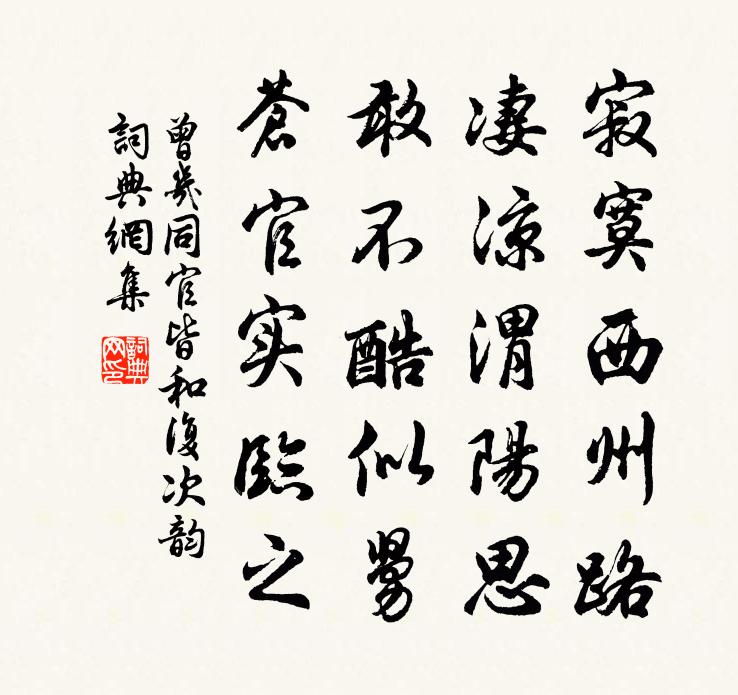 寂寞西州路
凄涼渭陽思
敢不酷似舅
蒼官实臨之
曾几同官皆和復次韵
詞典網集
詞典網印